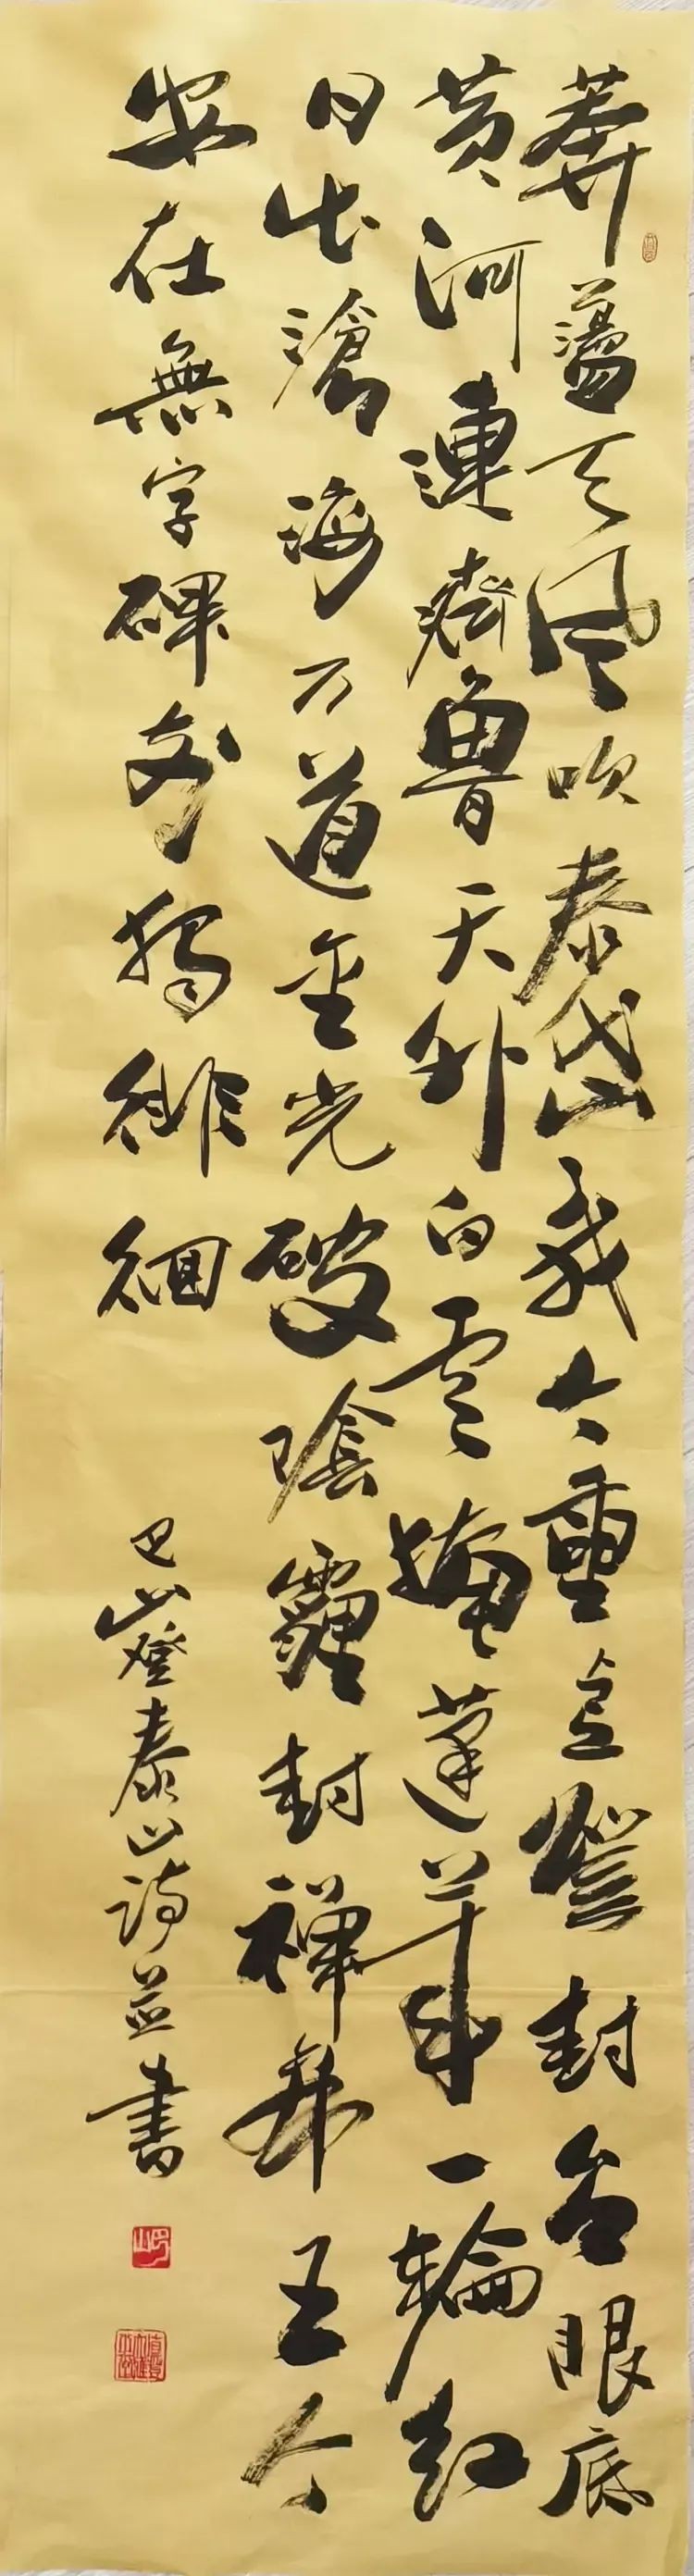 莽蕩天風吹泰岱我今重上登封台眼底
黄河連濟魯天外白雲掩蓬萊一輪紅
日出滄海万道金光破陰霾封禪帝王今
安在無字碑前獨徘徊
巴山登泰山詩並書